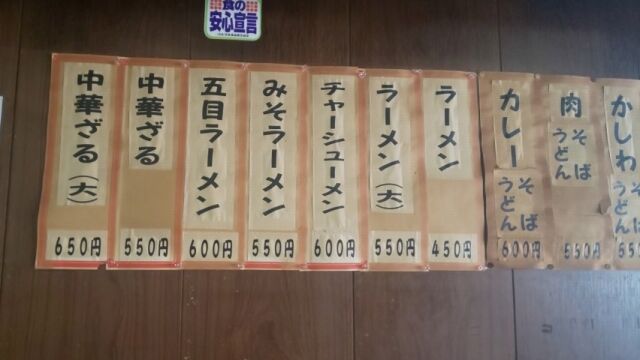 食の
安心宣言
かしわ
そば
うどん
肉
そば
うどん
550円
カレー
そば
うどん
600円
ラーメン
450円
ラーメン(大)
550円
チャーシューメン
600円
みそラーメン
550円
五目ラーメン
600円
中華ざる
550円
中華ざる(大)
650円